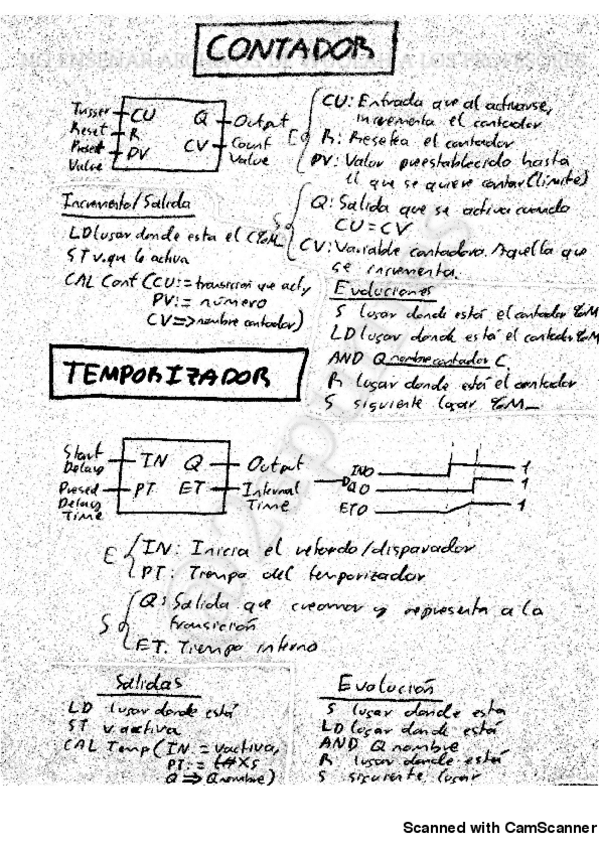 CONTADOR
Trigger CU Q Output
Reset R CV Count Value
Preset Value PV
E
CU: Entrada que al activarse,
incrementa el contador
R: Resetea el contador
PV: Valor preestablecido hasta
el que se quiere contar (límite)
S
Q: Salida que se activa cuando
CU=CV
CV: Variable contadora. Aquella que
se incrementa.
Incremento/Salida
LD lugar donde esta el C %M_
ST v.que lo activa
CAL Cont (CU:= transición que act,
PV:= número
CV=>nombre contador)
Evoluciones
S lugar donde está el contador %M
LD lugar donde está el contador %M
AND Q nombre contador C
R lugar donde está el contador
S siguiente lugar %M_
TEMPORIZADOR
Start Delay IN Q Output
Presed Delay Time PT ET Internal Time
IN0 1
Q0 1
ET0 1
E
IN: Inicia el retardo/disparador
PT: Tiempo del temporizador
S
Q: Salida que creamos y representa a la
transición
ET: Tiempo interno
Salidas
LD lugar donde está
ST v.activa
CAL Temp (IN = vactiva,
PT:= t#Xs
Q => Qnombre)
Evolución
S lugar donde está
LD lugar donde está
AND Q nombre
R lugar donde está
S siguiente lugar
Scanned with CamScanner